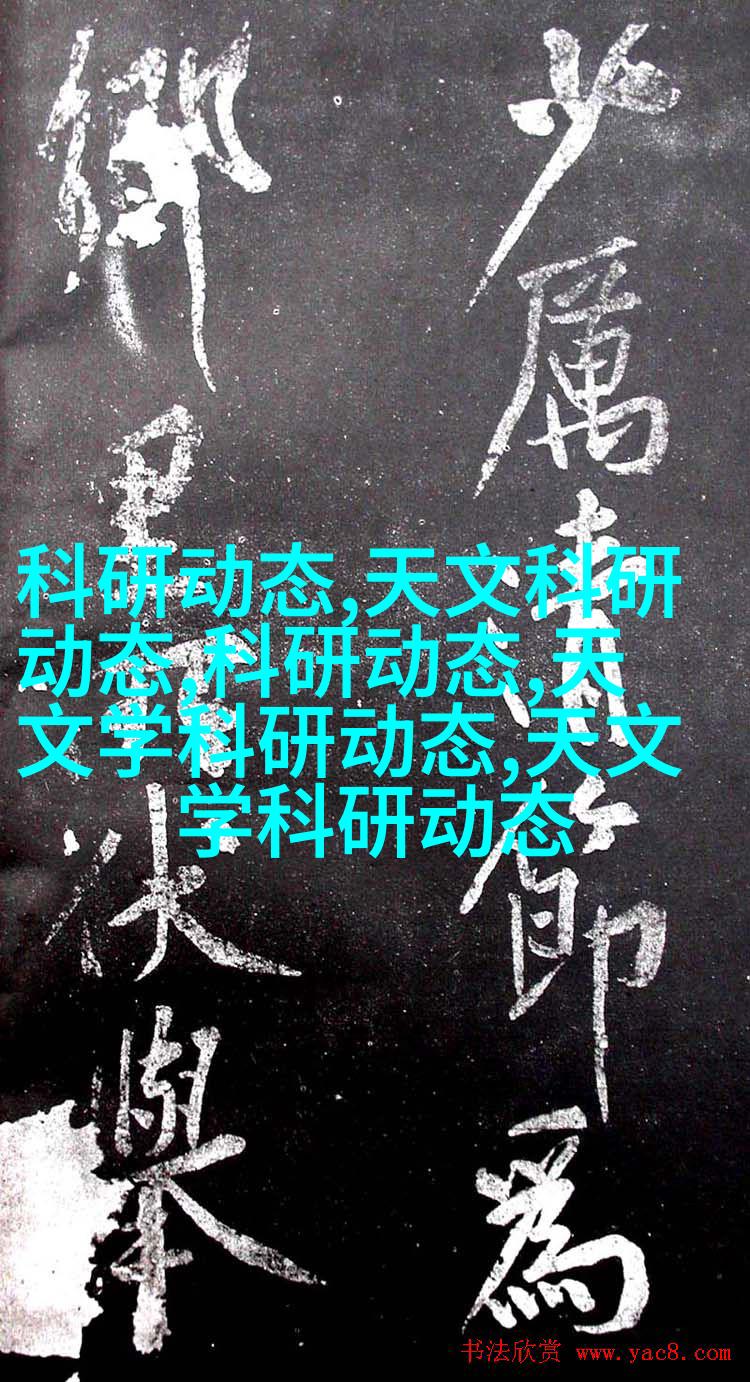 少厲清節為
鄉里所伏舉
科研动态,天文科研
动态,科研动态,天
文学科研动态,天文
学科研动态
书法欣赏 www.yac8.com